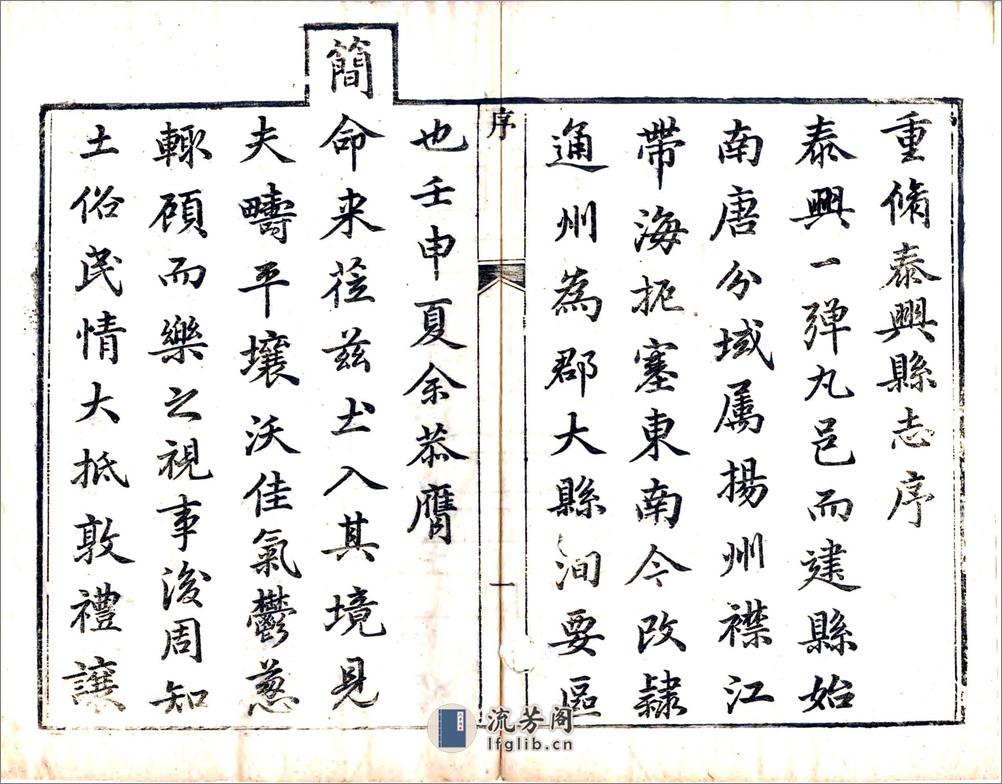 重脩泰興縣志序
泰興一彈丸邑而建縣始
南唐分域属揚州襟江
帶海扼塞東南今改隷
通州為郡大縣洵要區
序
一
也壬申夏余恭膺
簡
命来莅兹土入其境見
夫疇平壤沃佳氣鬱葱
輙顾而樂之視事後周知
土俗民情大抵敦禮讓
流芳阁
lfglib.cn